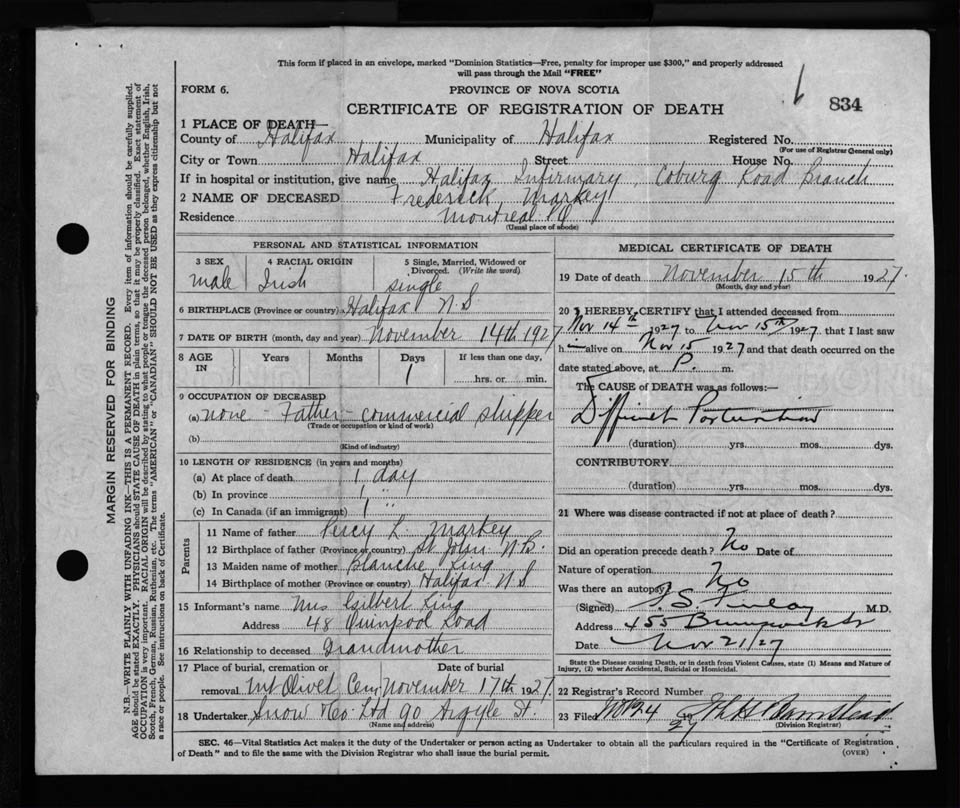 This form if placed in an envelope, marked "Dominion Statistics—Free, penalty for improper use $300," and properly addressed
will pass through the Mail "FREE"
FORM 6.
PROVINCE OF NOVA SCOTIA
CERTIFICATE OF REGISTRATION OF DEATH
834
1 PLACE OF DEATH—
County of Halifax Municipality of Halifax Registered No.
(For use of Registrar General only)
City or Town Halifax Street House No.
If in hospital or institution, give name Halifax Infirmary, Coburg Road Branch
2 NAME OF DECEASED Frederick Markey
Residence Montreal Q
(Usual place of abode)
MARGIN RESERVED FOR BINDING
N.B.—WRITE PLAINLY WITH UNFADING INK—THIS IS A PERMANENT RECORD. Every item of information should be carefully supplied.
AGE should be stated EXACTLY. PHYSICIANS should STATE CAUSE OF DEATH in plain terms, so that it may be properly classified. Exact statement of
OCCUPATION is very important. RACIAL ORIGIN will be described by stating to what people or tongue the deceased person belonged, whether English, Irish,
Scotch, French, German, Russian, Ruthenian, etc. The terms "AMERICAN" or "CANADIAN" SHOULD NOT BE USED as they express citizenship but not
a race or people. See instructions on back of Certificate.
PERSONAL AND STATISTICAL INFORMATION
3 SEX
male
4 RACIAL ORIGIN
Irish
5 Single, Married, Widowed or
Divorced. (Write the word)
single
6 BIRTHPLACE (Province or country) Halifax N S
7 DATE OF BIRTH (month, day and year) November 14th 1927
8 AGE IN
Years Months Days If less than one day,
1 hrs. or min.
9 OCCUPATION OF DECEASED
(a) none - Father - commercial shipper
(Trade or occupation or kind of work)
(b)
(Kind of industry)
10 LENGTH OF RESIDENCE (in years and months)
(a) At place of death 1 day
(b) In province 1 "
(c) In Canada (if an immigrant) 1 "
Parents
11 Name of father Percy L. Markey
12 Birthplace of father (Province or country) St. John N.B.
13 Maiden name of mother Blanche King
14 Birthplace of mother (Province or country) Halifax N S
15 Informant's name Mrs Gilbert King
Address 48 Quinpool Road
16 Relationship to deceased Grandmother
17 Place of burial, cremation or
removal Mt Olivet Cem
Date of burial
November 17th 1927.
18 Undertaker Snow & Co. Ltd 90 Argyle St.
(Name and address)
MEDICAL CERTIFICATE OF DEATH
19 Date of death November 15th 1927.
(Month, day and year)
20 I HEREBY CERTIFY that I attended deceased from
Nov 14th 1927 to Nov 15th 1927 that I last saw
him alive on Nov 15 1927 and that death occurred on the
date stated above, at P. m.
The CAUSE of DEATH was as follows:—
Difficult Parturition
(duration) yrs. mos. dys.
CONTRIBUTORY
(duration) yrs. mos. dys.
21 Where was disease contracted if not at place of death?
Did an operation precede death? No Date of
Nature of operation
Was there an autopsy No
(Signed) Finlay M.D.
Address 455 Brunswick St
Date Nov 21/27
State the Disease causing Death, or in death from Violent Causes, state (1) Means and Nature of
Injury, (2) whether Accidental, Suicidal or Homicidal.
22 Registrar's Record Number
23 Filed Nov 24 1927
(Division Registrar)
SEC. 46—Vital Statistics Act makes it the duty of the Undertaker or person acting as Undertaker to obtain all the particulars required in the "Certificate of Registration
of Death" and to file the same with the Division Registrar who shall issue the burial permit.
(OVER)